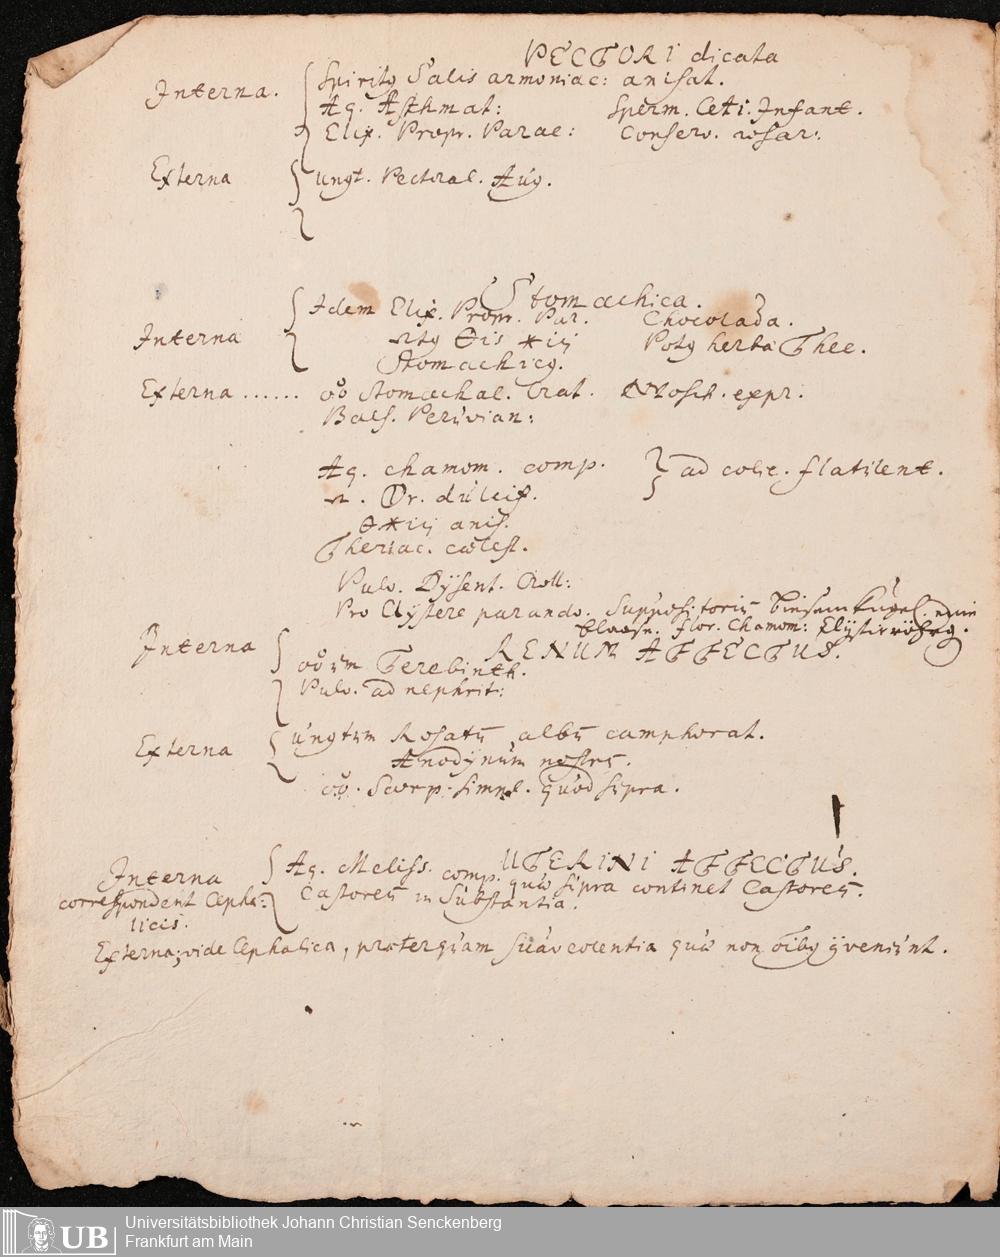 PECTORI dicata
Interna. Spiritq Salis armoniac: anisat.
Aq. Asthmat: Sperm. Ceti. Infant.
Elix. Propr. Parac: Conserv. rosar:
Externa Ungt. Pectoral. Aug.
Stomachica.
Idem Elix. Propr. Par. Chocolada.
Interna Potq herba Thee.
Stomachicq.
Externa ...... Stomachal. Crat. Mosch. expr.
Bals. Peruvian:
Aq. chamom. comp. ad colic. flatulent.
Dr. dulcif.
anis.
Theriac. coelest.
Pulv. Dysent. Croll:
Pro Clystere parando. Suppositoriu
blase. flor. Chamom:
RENUM AFFECTUS.
Interna Terebinth.
Pulv. ad nephrit:
Externa Ungtum Rosatu albu camphorat.
Anodynum nostru.
Scorp. simpl. quod supra.
UTERINI AFFECTUS.
Interna Aq. Meliss. comp. quae supra continet Castoreu.
correspondent Cepha: Castoreu in Substantia.
licis.
Externa; vide Cephalica, praeterquam suaveolentia quae non oibq gveniunt.
Universitätsbibliothek Johann Christian Senckenberg
Frankfurt am Main
UB